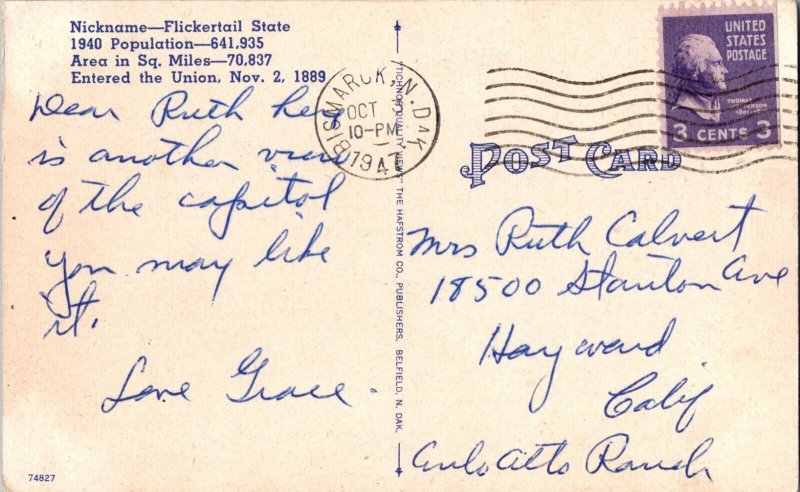 Nickname—Flickertail State
1940 Population—641,935
Area in Sq. Miles—70,837
Entered the Union, Nov. 2, 1889
Dear Ruth here
is another view
of the capitol
you may like
it.
Love Grace.
74827
TICHNOR QUALITY VIEWS THE HAFSTROM CO., PUBLISHERS, BELFIELD, N. DAK.
BISMARCK, N. DAK
OCT
10-PM
194
UNITED
STATES
POSTAGE
THOMAS
JEFFERSON
3 CENTS 3
POST CARD
Mrs Ruth Calvert
18500 Stanton Ave
Hayward
Calif
Alto Ranch